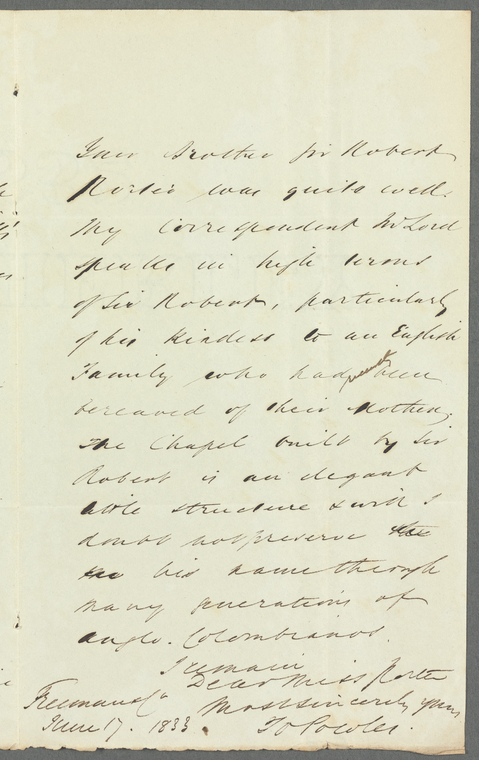 Your Brother Sir Robert
Porter was quite well.
My Correspondent Mr Lord
speaks in high terms
of Sir Robert, particularly
of his kindess to an English
Family who had recently been
bereaved of their Mother;
The Chapel built by Sir
Robert is an elegant
little structure & will I
doubt not preserve the
the his name through
many generations of
anglo-Colombianos.
I remain
Dear Miss Porter
Most sincerely yours
Freemans Ct
June 17. 1833.
Powles.